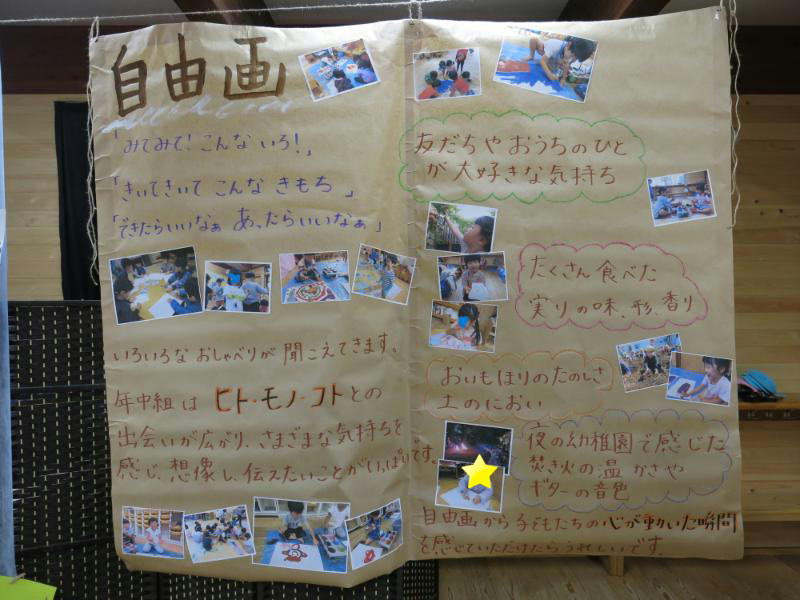 自由画
「みてみて！こんな いろ！」
「きいてきいて こんな きもち 」
「できたらいいなぁ あったらいいなぁ 」
いろいろな おしゃべりが 聞こえてきます。
年中組は ヒト・モノ・コトとの
出会いが広がり、さまざまな気持ちを
感じ、想像し、伝えたいことがいっぱいです。
友だちや おうちのひと
が 大好きな気持ち
たくさん食べた
実りの味、形、香り
おいもほりのたのしさ
土のにおい
夜の幼稚園で感じた
焚き火の温かさや
ギターの音色
自由画から子どもたちの心が動いた瞬間
を感じていただけたらうれしいです。